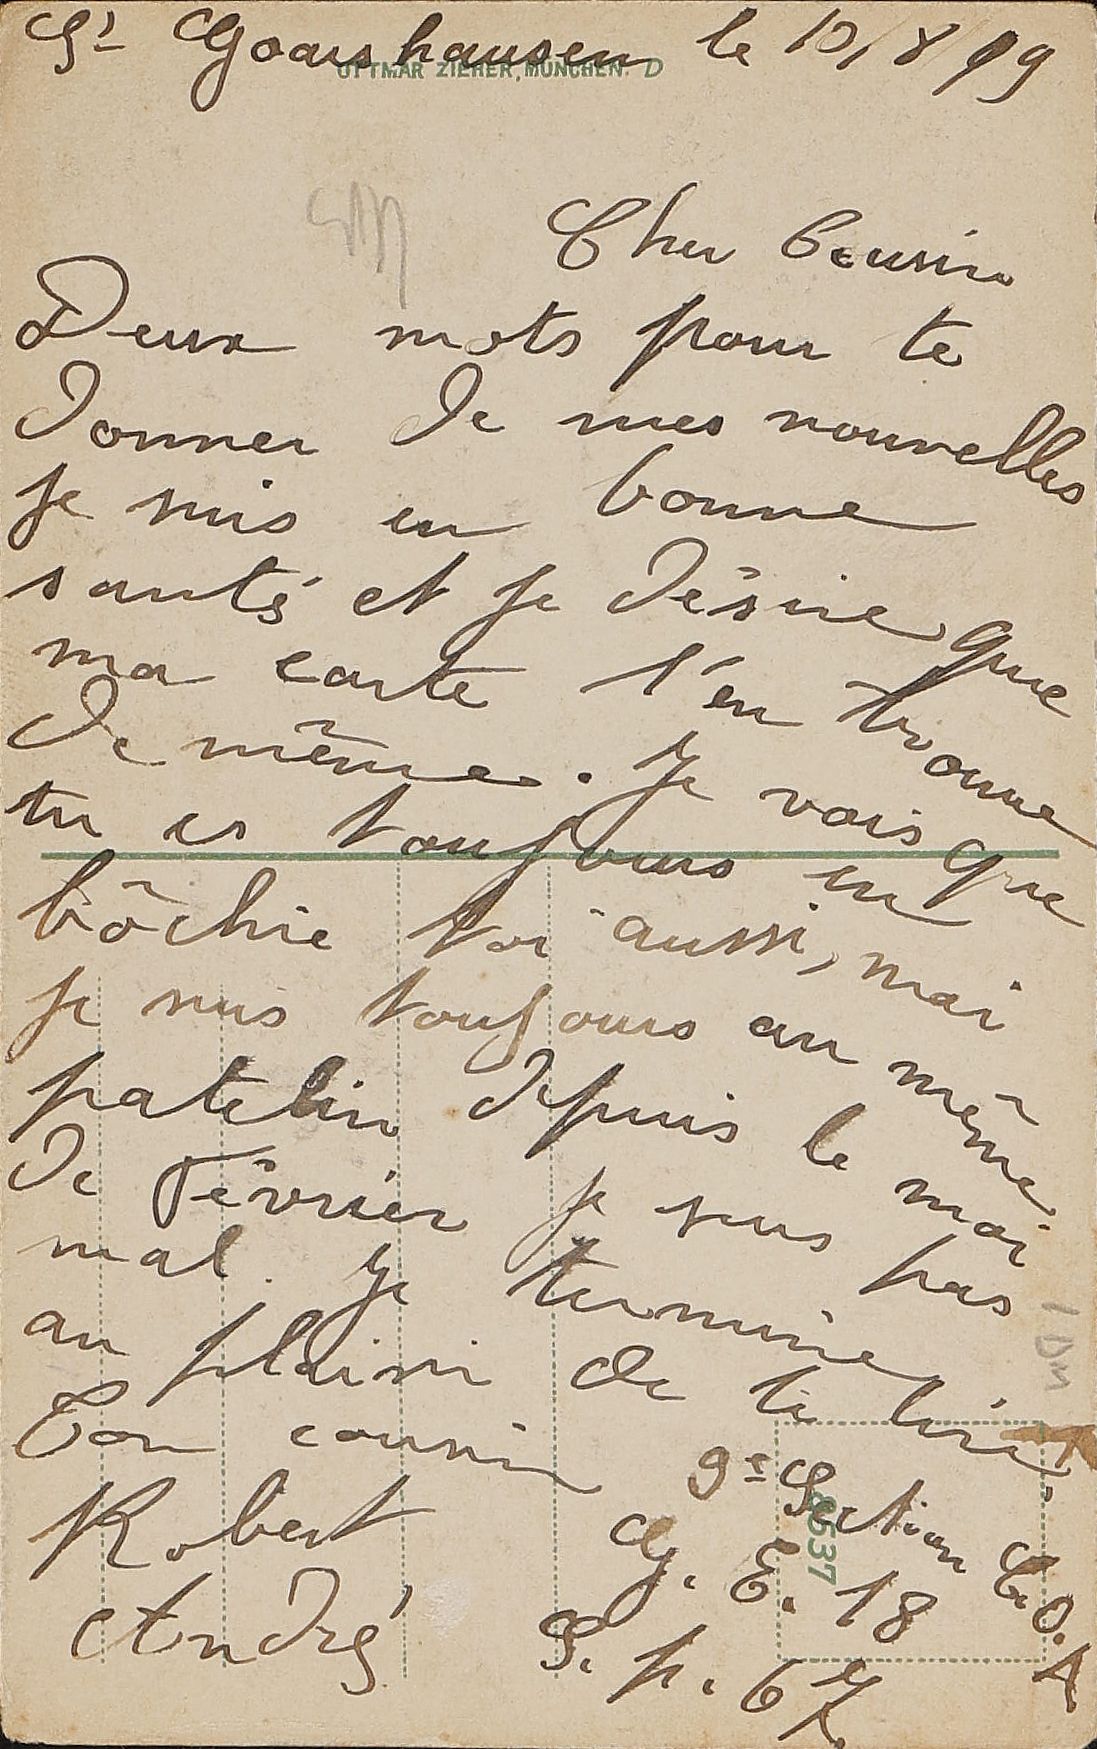 St Goarshausen le 10/8/19
OTTMAR ZIEHER, MÜNCHEN. D
Cher Cousin
Deux mots pour te
donner de mes nouvelles
je suis en bonne
santé et je désire que
ma carte t'en trouve
de même. Je vois que
tu es toujours en
bôchie toi aussi, moi
je suis toujours au même
patelin depuis le moi
de Février je suis pas
mal. Je termine
au plaisir de te lire.
Ton cousin
Robert
André
9e Section C.O.A.
G. E. 18
S. p. 67
8537